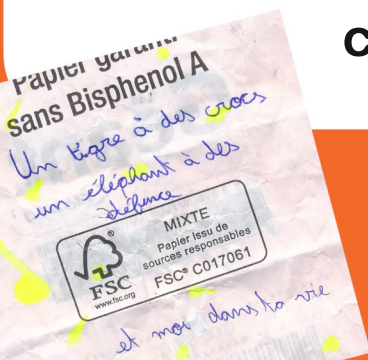 C
Papier garanti
sans Bisphenol A
Un tigre à des crocs
un éléphant à des
défence
MIXTE
Papier issu de
sources responsables
FSC® C017061
®
FSC
www.fsc.org
et moi dans ta vie